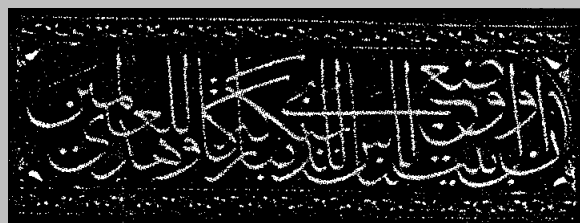 ان اول بيت وضع للناس للذي ببكة مباركا وهدى للعالمين